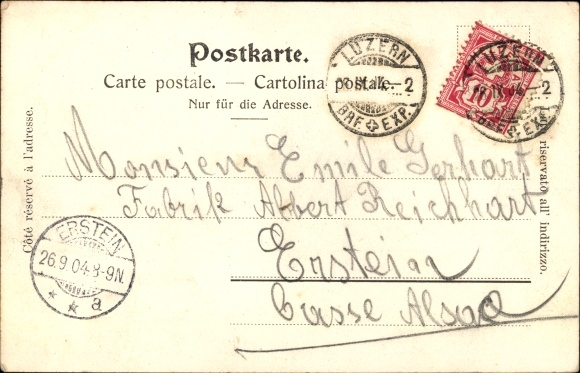 Postkarte.
Carte postale. — Cartolina postale.
Nur für die Adresse.
LUZERN
IX.04.–2
BRF. EXP.
10
LUZERN
IX.04.–2
BRF. EXP.
Côté réservé à l'adresse.
riservato all' indirizzo.
Monsieur Emile Gerhart
Fabrik Albert Reichhart
Erstein
Basse Alsace
ERSTEIN
26.9.04.8-9N.
* * a